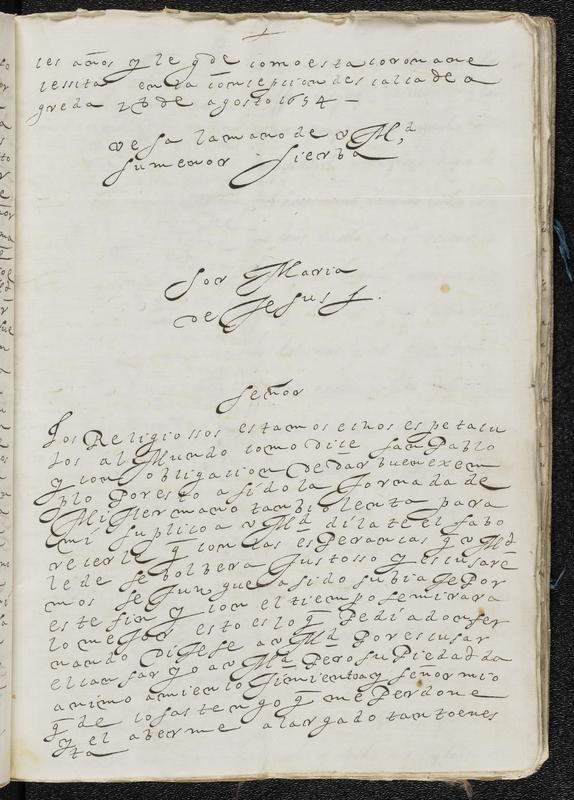 ces años y le gde como esta corona ne
cessita en la concepcion descalca de a
greda 28 de agosto 1654 —
vesa la mano de v Md,
su menor Sierba
Sor Maria
de Jesus
Señor
Los Religiossos estamos echos espetacu
los al Mundo como dice San Pablo
y con obligacion de Dar buen exem
plo Por esto a sido la Jornada de
Mi Hermano tan biolenta para
mi suplico a v Md dilate el fabo
recerle q con las esperancas q v Md
le de se bolbera Justosso y escusare
mos se Junque a sido su biaje Por
este fin y con el tiempo se mirara
lo mejor esto es lo q Pedi a don fer
nando Dijese a v Md Por escusar
el cansar yo a v Md Pero su Piedad da
animo a miento Jimiento ay señor mio
q de cosas tengo q me Perdone
y el aberme alargado tanto en es
ta